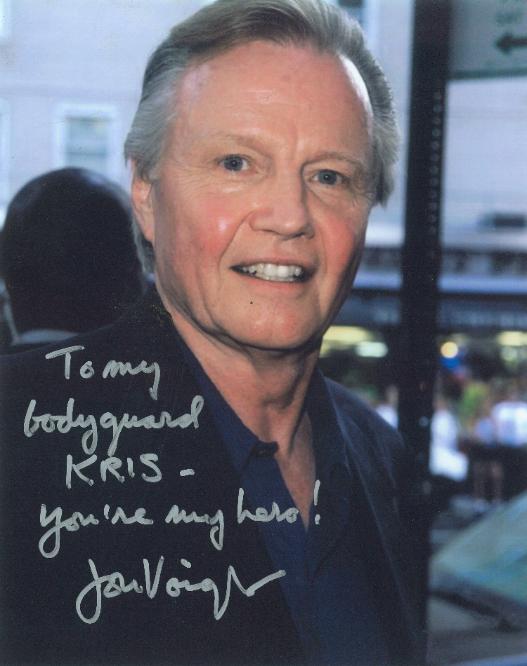 To my
bodyguard
KRIS -
you're my hero!
Jon Voight